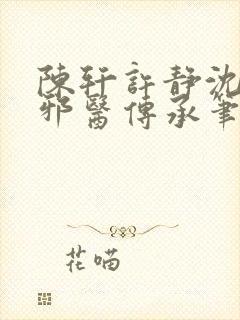 陳轩許静沈
邪醫傳承筆
花喵